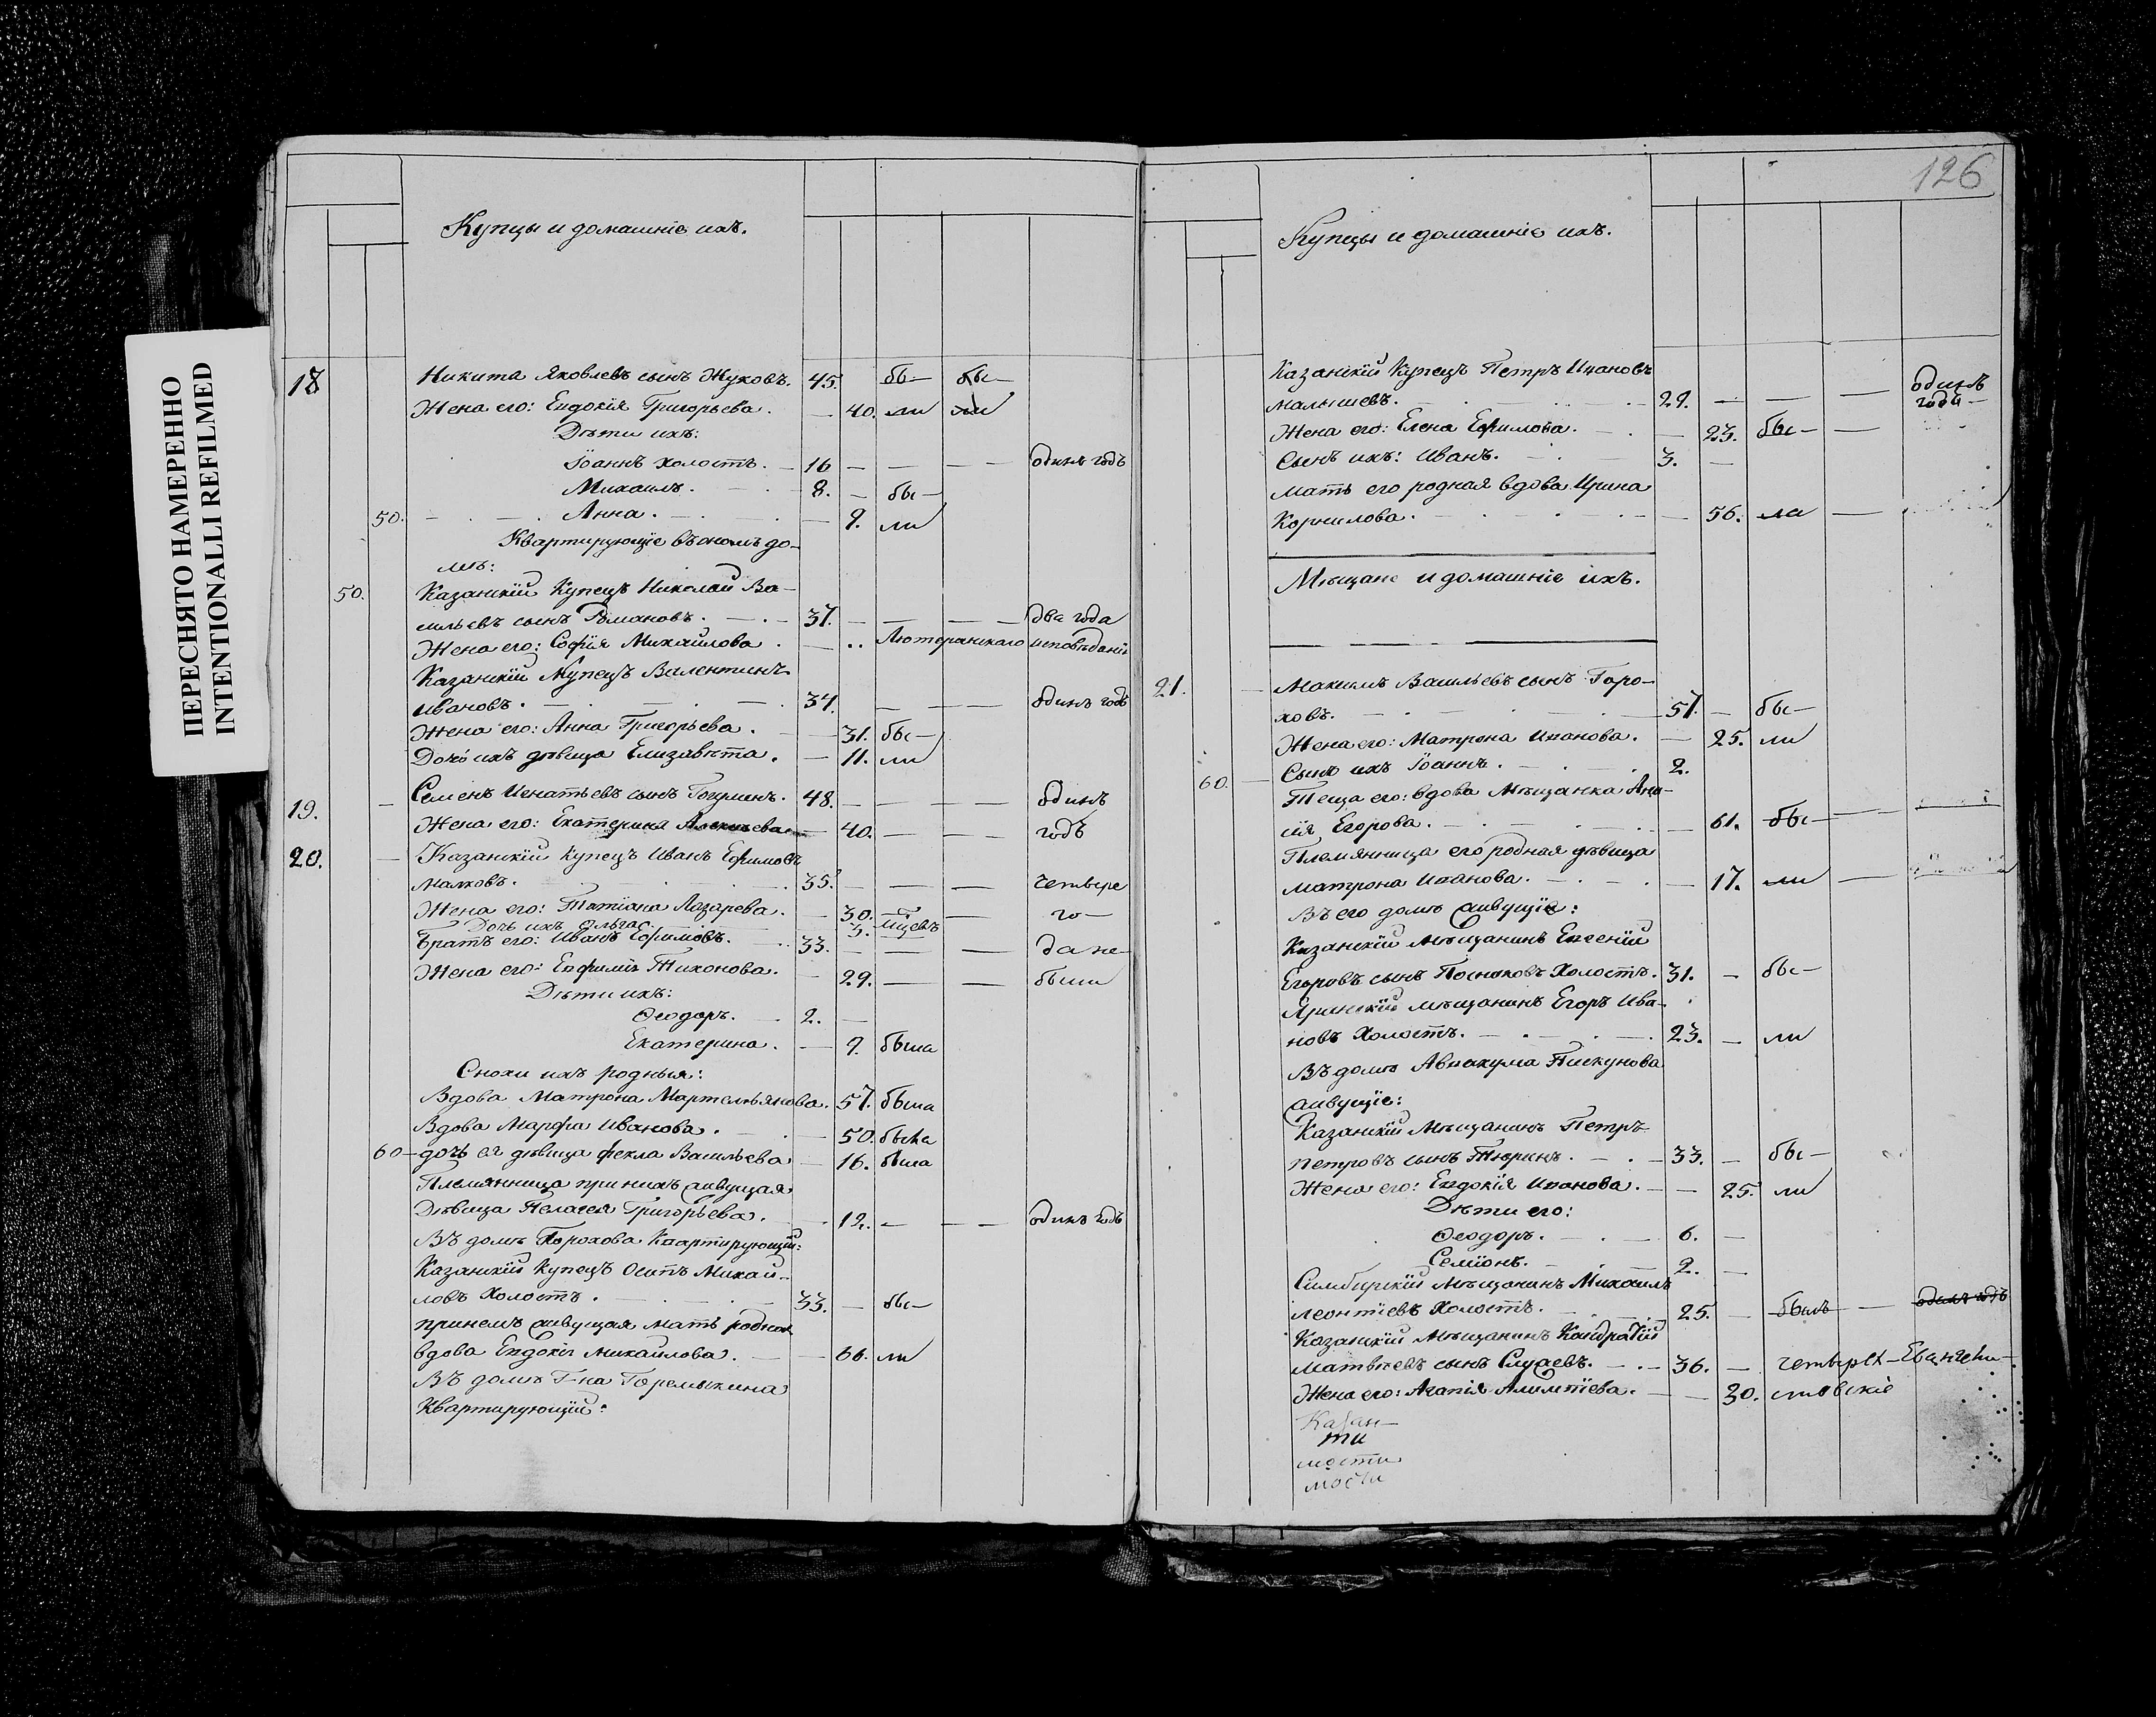 ПЕРЕСНЯТО НАМЕРЕННО
INTENTIONALLI REFILMED
Купцы и домашніе ихъ.
18 Никита Яковлевъ сынъ Жуковъ. 45. бы- бы-
Жена его: Евдокія Григорьева. 40. ли ли
Дѣти ихъ:
Іоаннъ холостъ. 16 — — — одинъ годъ
Михаилъ. 8. — бы-
50. Анна. 9. ли
Квартирующіе въ ономъ до-
мѣ:
50. Казанскій Купецъ Николай Ва-
сильевъ сынъ Романовъ. 37. — — — два года
Жена его: Софія Михайлова. Лютеранскаго исповѣданія
Казанскій Купецъ Валентинъ
Ивановъ. 34. — — — одинъ годъ
Жена его: Анна Григорьева. 31. бы-
Дочь ихъ дѣвица Елизавѣта. 11. ли
19. Семенъ Игнатьевъ сынъ 48. — — — одинъ
Жена его: Екатерина 40. — — годъ
20. Казанскій Купецъ Иванъ Ефимовъ
Малковъ. 35. — — — четвере
Жена его: Татіана Лазарева. 30. — — го-
Дочь ихъ Ольга. 3.
Братъ его: Иванъ Ефимовъ. 33. — — — да не
Жена его: Евфимія Тихонова. 29. — — были
Дѣти ихъ:
Ѳеодоръ. 2. —
Екатерина. 9. была
Снохи ихъ родныя:
Вдова Матрона Мартемьянова. 57. была
Вдова Марфа Иванова. 50. была
60 дочь ея дѣвица Фекла Васильева 16. была
Племянница при нихъ живущая
Дѣвица Пелагея Григорьева. 12. — — — одинъ годъ
Въ домѣ Порохова Квартирующій:
Казанскій Купецъ Осипъ Михай-
ловъ Холостъ. 33. — бы-
при немъ живущая мать родная
вдова Евдокія Михайлова. 66. ли
Въ домѣ Г-на Горемыкина
Квартирующій:
126
Купцы и домашніе ихъ.
Казанскій Купецъ Петръ Ивановъ
Малышевъ. 29. — — — одинъ
годъ
Жена его: Елена Ефимова. 23. бы- —
Сынъ ихъ: Иванъ. 3. —
Мать его родная вдова Ирина
Корнилова. 56. ли —
Мѣщане и домашніе ихъ.
21. Максимъ Васильевъ сынъ Горо-
ховъ. 57. — бы-
Жена его: Матрона Иванова. 25. ли
60. Сынъ ихъ Іоаннъ. 2.
Теща его: вдова Мѣщанка
Егорова. 61. бы-
Племянница его родная дѣвица
Матрона Иванова. 17. ли —
Въ его домѣ живущіе:
Казанскій Мѣщанинъ Евгеній
Егоровъ сынъ Холостъ. 31. — бы-
мѣщанинъ Егоръ Ива-
новъ Холостъ. 23. — ли
Въ домѣ Аввакума Пискунова
живущіе:
Казанскій Мѣщанинъ Петръ
Петровъ сынъ Тюринъ. 33. — бы-
Жена его: Евдокія Иванова. 25. ли
Дѣти его:
Ѳеодоръ. 6. —
Семіонъ. 2. —
Симбирскій Мѣщанинъ Михаилъ
Леонтіевъ Холостъ. 25. — былъ — одинъ годъ
Казанскій Мѣщанинъ Кондратій
Матвѣевъ сынъ 36. —
Жена его: Агапія 30.
Казан-
ти
мости
мости